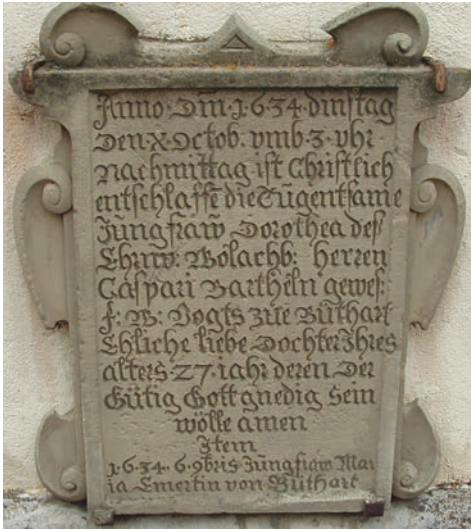 Anno · Dm̄ 1·6·34· dinstag
Den·X·Octob. vmb·3·vhr
Nachmittag ist Christlich
entschlaffē die Tugentsame
Jungfraw Dorothea deß
Ehrnv: Wolachb: herren
Caspari Bartheln geweß:
f: W: Vogts zue Büthart
Ehliche liebe Dochter Ihres
alters 27 iahr deren Der
Gütig Gott gnedig Sein
wölle amen
Item
1·6·34·· 6·9bris Jungfraw Mar
ia Emertin von Büthart